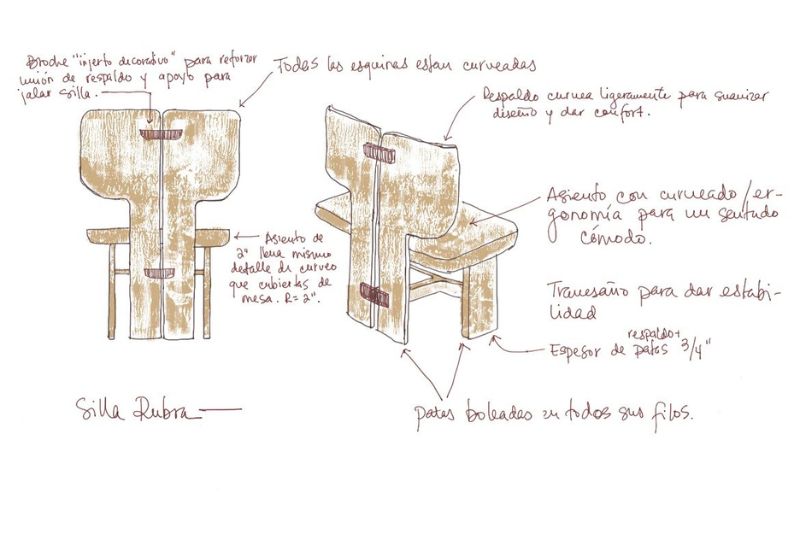 Broche "injerto decorativo" para reforzar
unión de respaldo y apoyo para
jalar silla.
Todas las esquinas estan curveadas
Respaldo curvea ligeramente para suavizar
diseño y dar confort.
Asiento con curveado/er-
gonomía para un sentado
cómodo.
Asiento de
2" lleva mismo
detalle de curveo
que cubiertas de
mesa. R=2".
Travesaño para dar estabi-
lidad
respaldo+
Espesor de patas 3/4"
Silla Rubra
patas boleadas en todos sus filos.